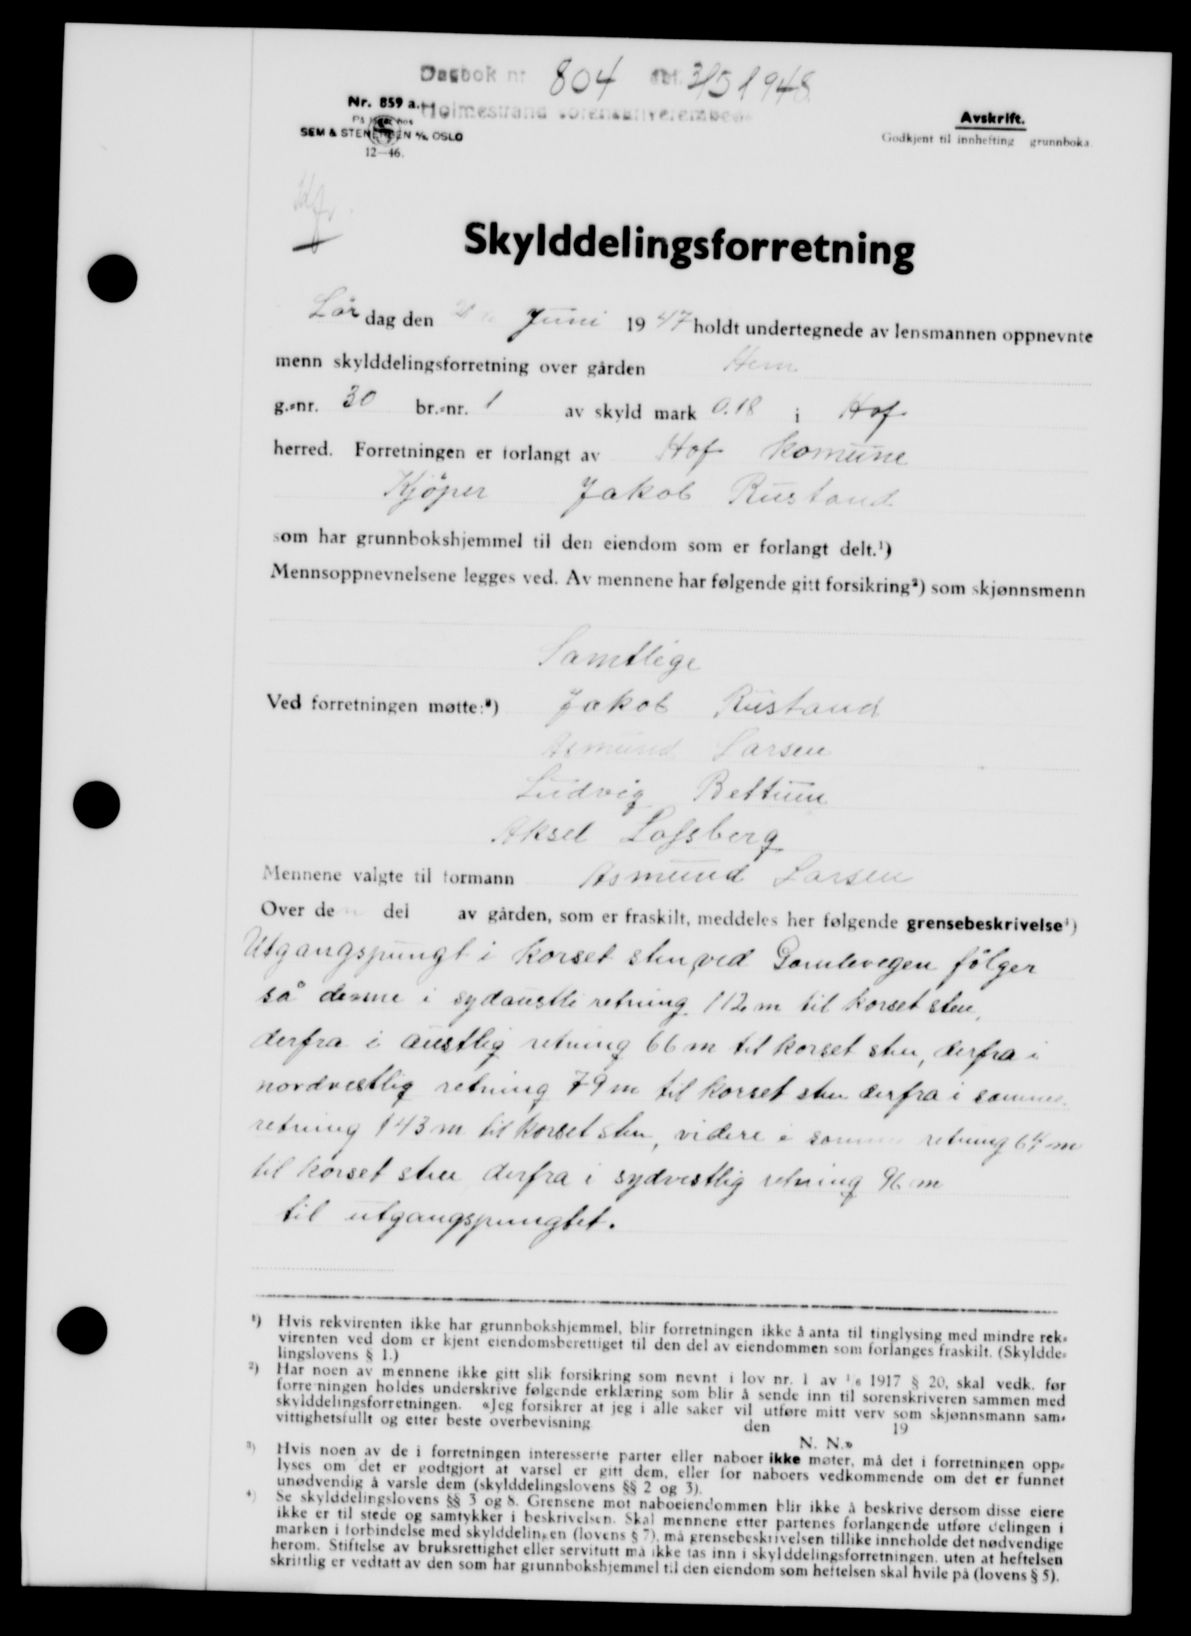 Dagbok nr 804 3/5 1948
Nr. 859 a.
Holmestrand sorenskriverembede
På lager hos
SEM & STENERSEN A/S, OSLO
12-46.
Avskrift.
Godkjent til innhefting grunnboka.
Skylddelingsforretning
Lør dag den Juni 19 47 holdt undertegnede av lensmannen oppnevnte
menn skylddelingsforretning over gården Hem
g.-nr. 30 br.-nr. 1 av skyld mark 0.18 i Hof
herred. Forretningen er forlangt av Hof Komune
Kjöper Jakob Rustand
som har grunnbokshjemmel til den eiendom som er forlangt delt.¹)
Mennsoppnevnelsene legges ved. Av mennene har følgende gitt forsikring²) som skjønnsmenn
Samtlige
Ved forretningen møtte:³) Jakob Rustand
Asmund Larsen
Ludvig Bettum
Aksel Lofsberg
Mennene valgte til formann Asmund Larsen
Over de n del av gården, som er fraskilt, meddeles her følgende grensebeskrivelse⁴)
Utgangspungt i korset sten, ved Gamlevegen fölger
så denne i sydaustli retning 112 m til korset sten,
derfra i austlig retning 66 m til korset sten, derfra i
nordvestlig retning 79 m til korset sten derfra i samme
retning 143 m til korset sten, videre i samme retning 64 m
til korset sten derfra i sydvestlig retning 96 m
til utgangspungtet.
¹) Hvis rekvirenten ikke har grunnbokshjemmel, blir forretningen ikke å anta til tinglysing med mindre rek-
virenten ved dom er kjent eiendomsberettiget til den del av eiendommen som forlanges fraskilt. (Skyldde-
lingslovens § 1.)
²) Har noen av mennene ikke gitt slik forsikring som nevnt i lov nr. 1 av 1/6 1917 § 20, skal vedk. før
forretningen holdes underskrive følgende erklæring som blir å sende inn til sorenskriveren sammen med
skylddelingsforretningen. «Jeg forsikrer at jeg i alle saker vil utføre mitt verv som skjønnsmann sam-
vittighetsfullt og etter beste overbevisning den 19
N. N.»
³) Hvis noen av de i forretningen interesserte parter eller naboer ikke møter, må det i forretningen opp-
lyses om det er godtgjort at varsel er gitt dem, eller for naboers vedkommende om det er funnet
unødvendig å varsle dem (skylddelingslovens §§ 2 og 3).
⁴) Se skylddelingslovens §§ 3 og 8. Grensene mot naboeiendommen blir ikke å beskrive dersom disse eiere
ikke er til stede og samtykker i beskrivelsen. Skal mennene etter partenes forlangende utføre delingen i
marken i forbindelse med skylddelingen (lovens § 7), må grensebeskrivelsen tillike inneholde det nødvendige
herom. Stiftelse av bruksrettighet eller servitutt må ikke tas inn i skylddelingsforretningen, uten at heftelsen
skriftlig er vedtatt av den som har grunnbokshjemmel til den eiendom som heftelsen skal hvile på (lovens § 5).